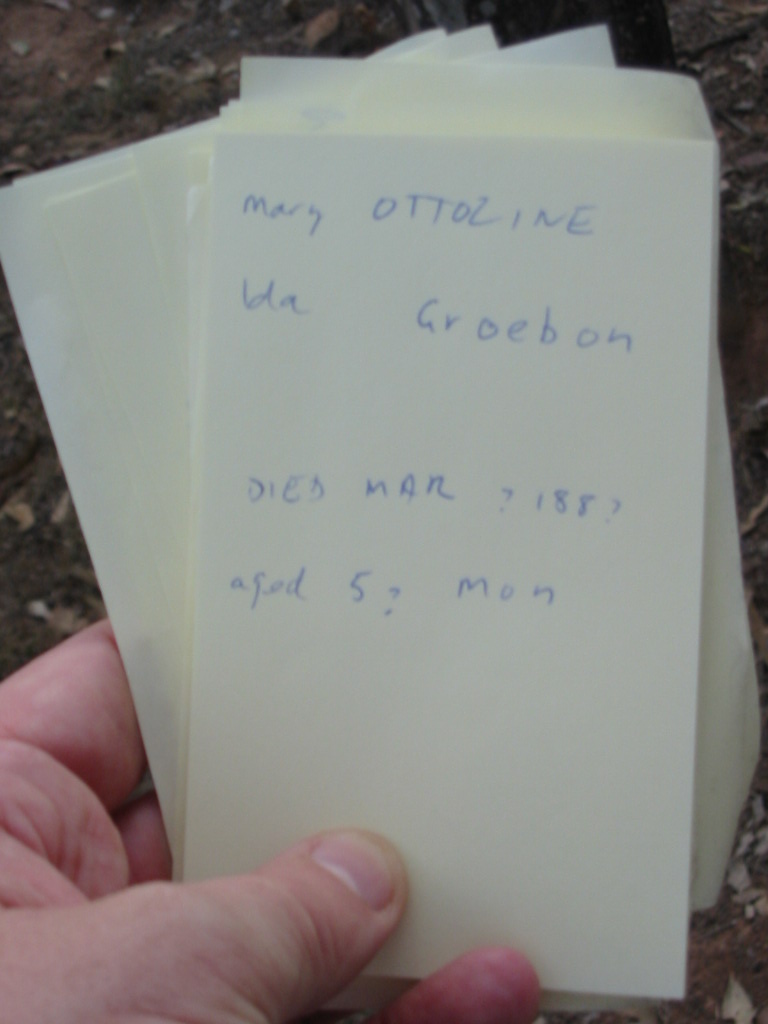 Mary OTTOZINE
Ida Groebon
DIED MAR ? 188?
aged 5? Mon